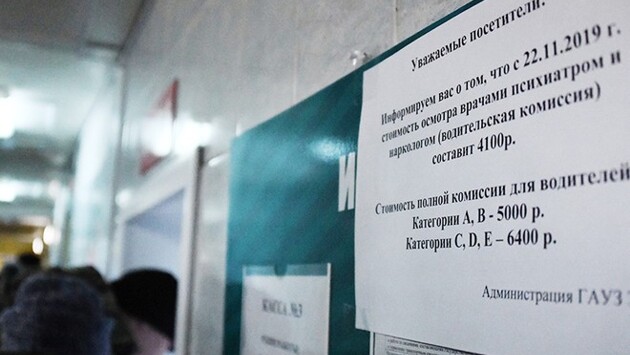 Уважаемые посетители!
Информируем вас о том, что с 22.11.2019 г.
стоимость осмотра врачами психиатром и
наркологом (водительская комиссия)
составит 4100р.
Стоимость полной комиссии для водителей
Категории А, В - 5000 р.
Категории С, D, Е – 6400 р.
Администрация ГАУЗ
И
КАССА №3